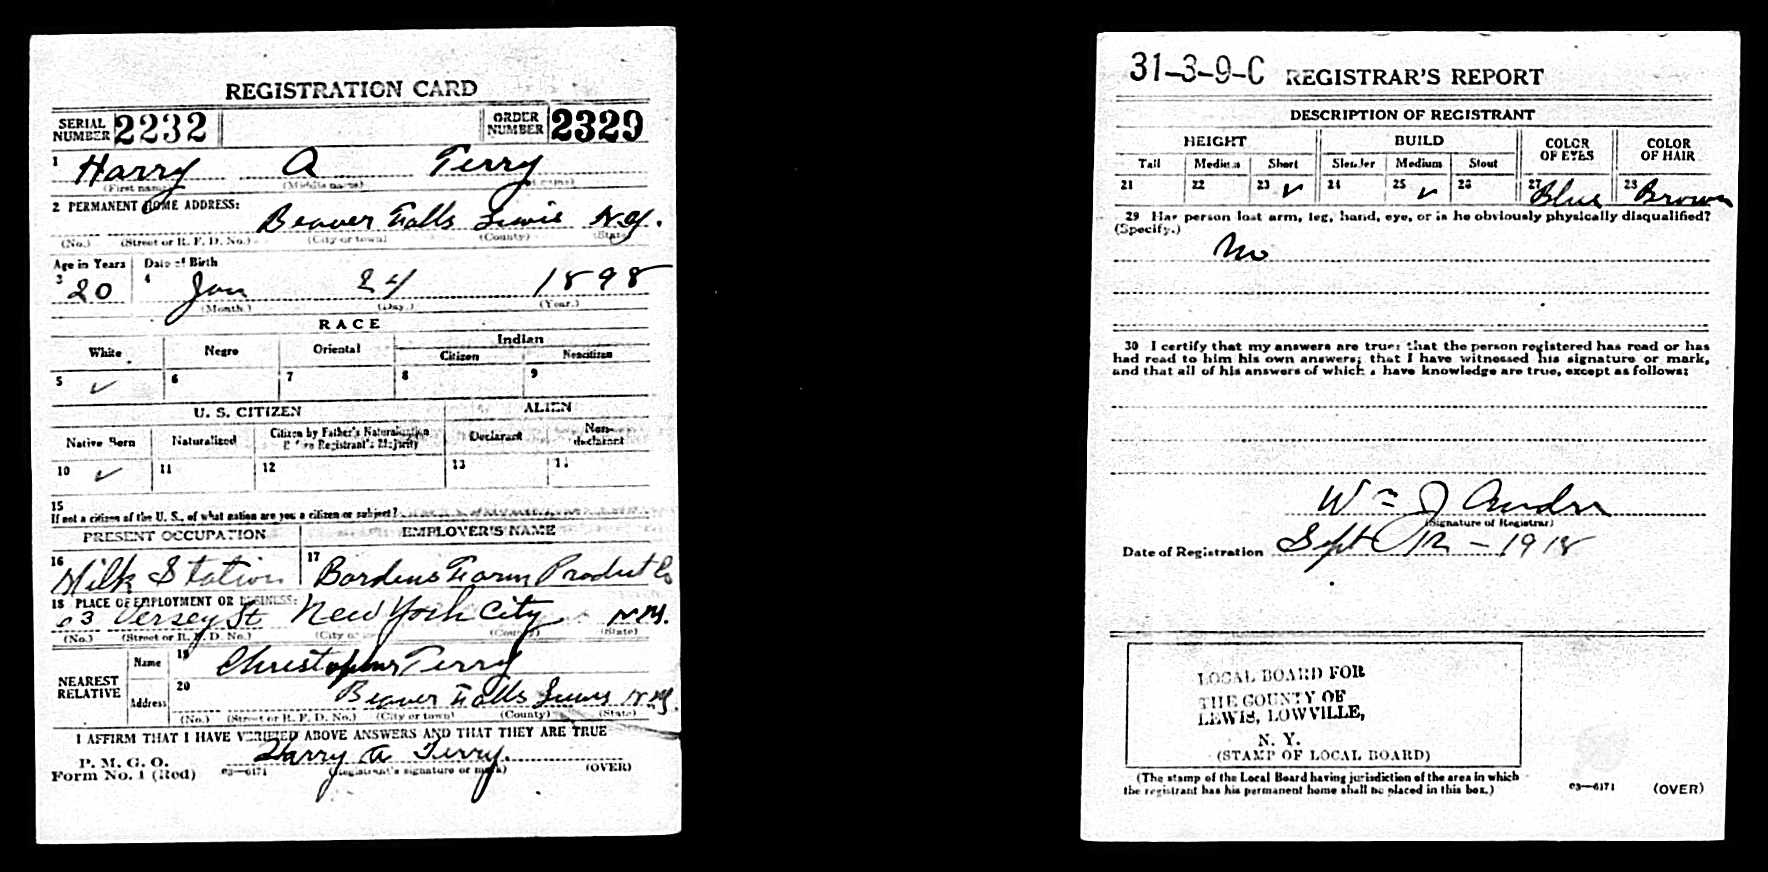 REGISTRATION CARD
SERIAL NUMBER 2232 ORDER NUMBER 2329
1 Harry A Terry
(First name) (Middle name) (Last name)
2 PERMANENT HOME ADDRESS:
Beaver Falls Lewis N.Y.
(No.) (Street or R. F. D. No.) (City or town) (County) (State)
Age in Years Date of Birth
3 20 4 Jan 24 1898
(Month.) (Day.) (Year.)
RACE
White Negro Oriental Indian
Citizen Noncitizen
5 ✓ 6 7 8 9
U. S. CITIZEN ALIEN
Native Born Naturalized Citizen by Father's Naturalization Before Registrant's Majority Declarant Non-declarant
10 ✓ 11 12 13 14
15
If not a citizen of the U. S., of what nation are you a citizen or subject?
PRESENT OCCUPATION EMPLOYER'S NAME
16 Milk Station 17 Bordens Farm Product Co
18 PLACE OF EMPLOYMENT OR BUSINESS:
63 Versey St New York City N.Y.
(No.) (Street or R. F. D. No.) (City or town) (County) (State)
NEAREST RELATIVE Name 19 Christopher Terry
Address 20 Beaver Falls Lewis N.Y.
(No.) (Street or R. F. D. No.) (City or town) (County) (State)
I AFFIRM THAT I HAVE VERIFIED ABOVE ANSWERS AND THAT THEY ARE TRUE
P. M. G. O.
Form No. 1 (Red) 03—6171 Harry A Terry.
(Registrant's signature or mark) (OVER)
31-3-9-C REGISTRAR'S REPORT
DESCRIPTION OF REGISTRANT
HEIGHT BUILD COLOR OF EYES COLOR OF HAIR
Tall Medium Short Slender Medium Stout
21 22 23 ✓ 24 25 ✓ 26 27 Blue 28 Brown
29 Has person lost arm, leg, hand, eye, or is he obviously physically disqualified?
(Specify.)
No
30 I certify that my answers are true; that the person registered has read or has
had read to him his own answers; that I have witnessed his signature or mark,
and that all of his answers of which I have knowledge are true, except as follows:
Wm J
(Signature of Registrar)
Date of Registration Sept 12 - 1918
LOCAL BOARD FOR
THE COUNTY OF
LEWIS, LOWVILLE,
N. Y.
(STAMP OF LOCAL BOARD)
(The stamp of the Local Board having jurisdiction of the area in which
the registrant has his permanent home shall be placed in this box.)
03—6171 (OVER)